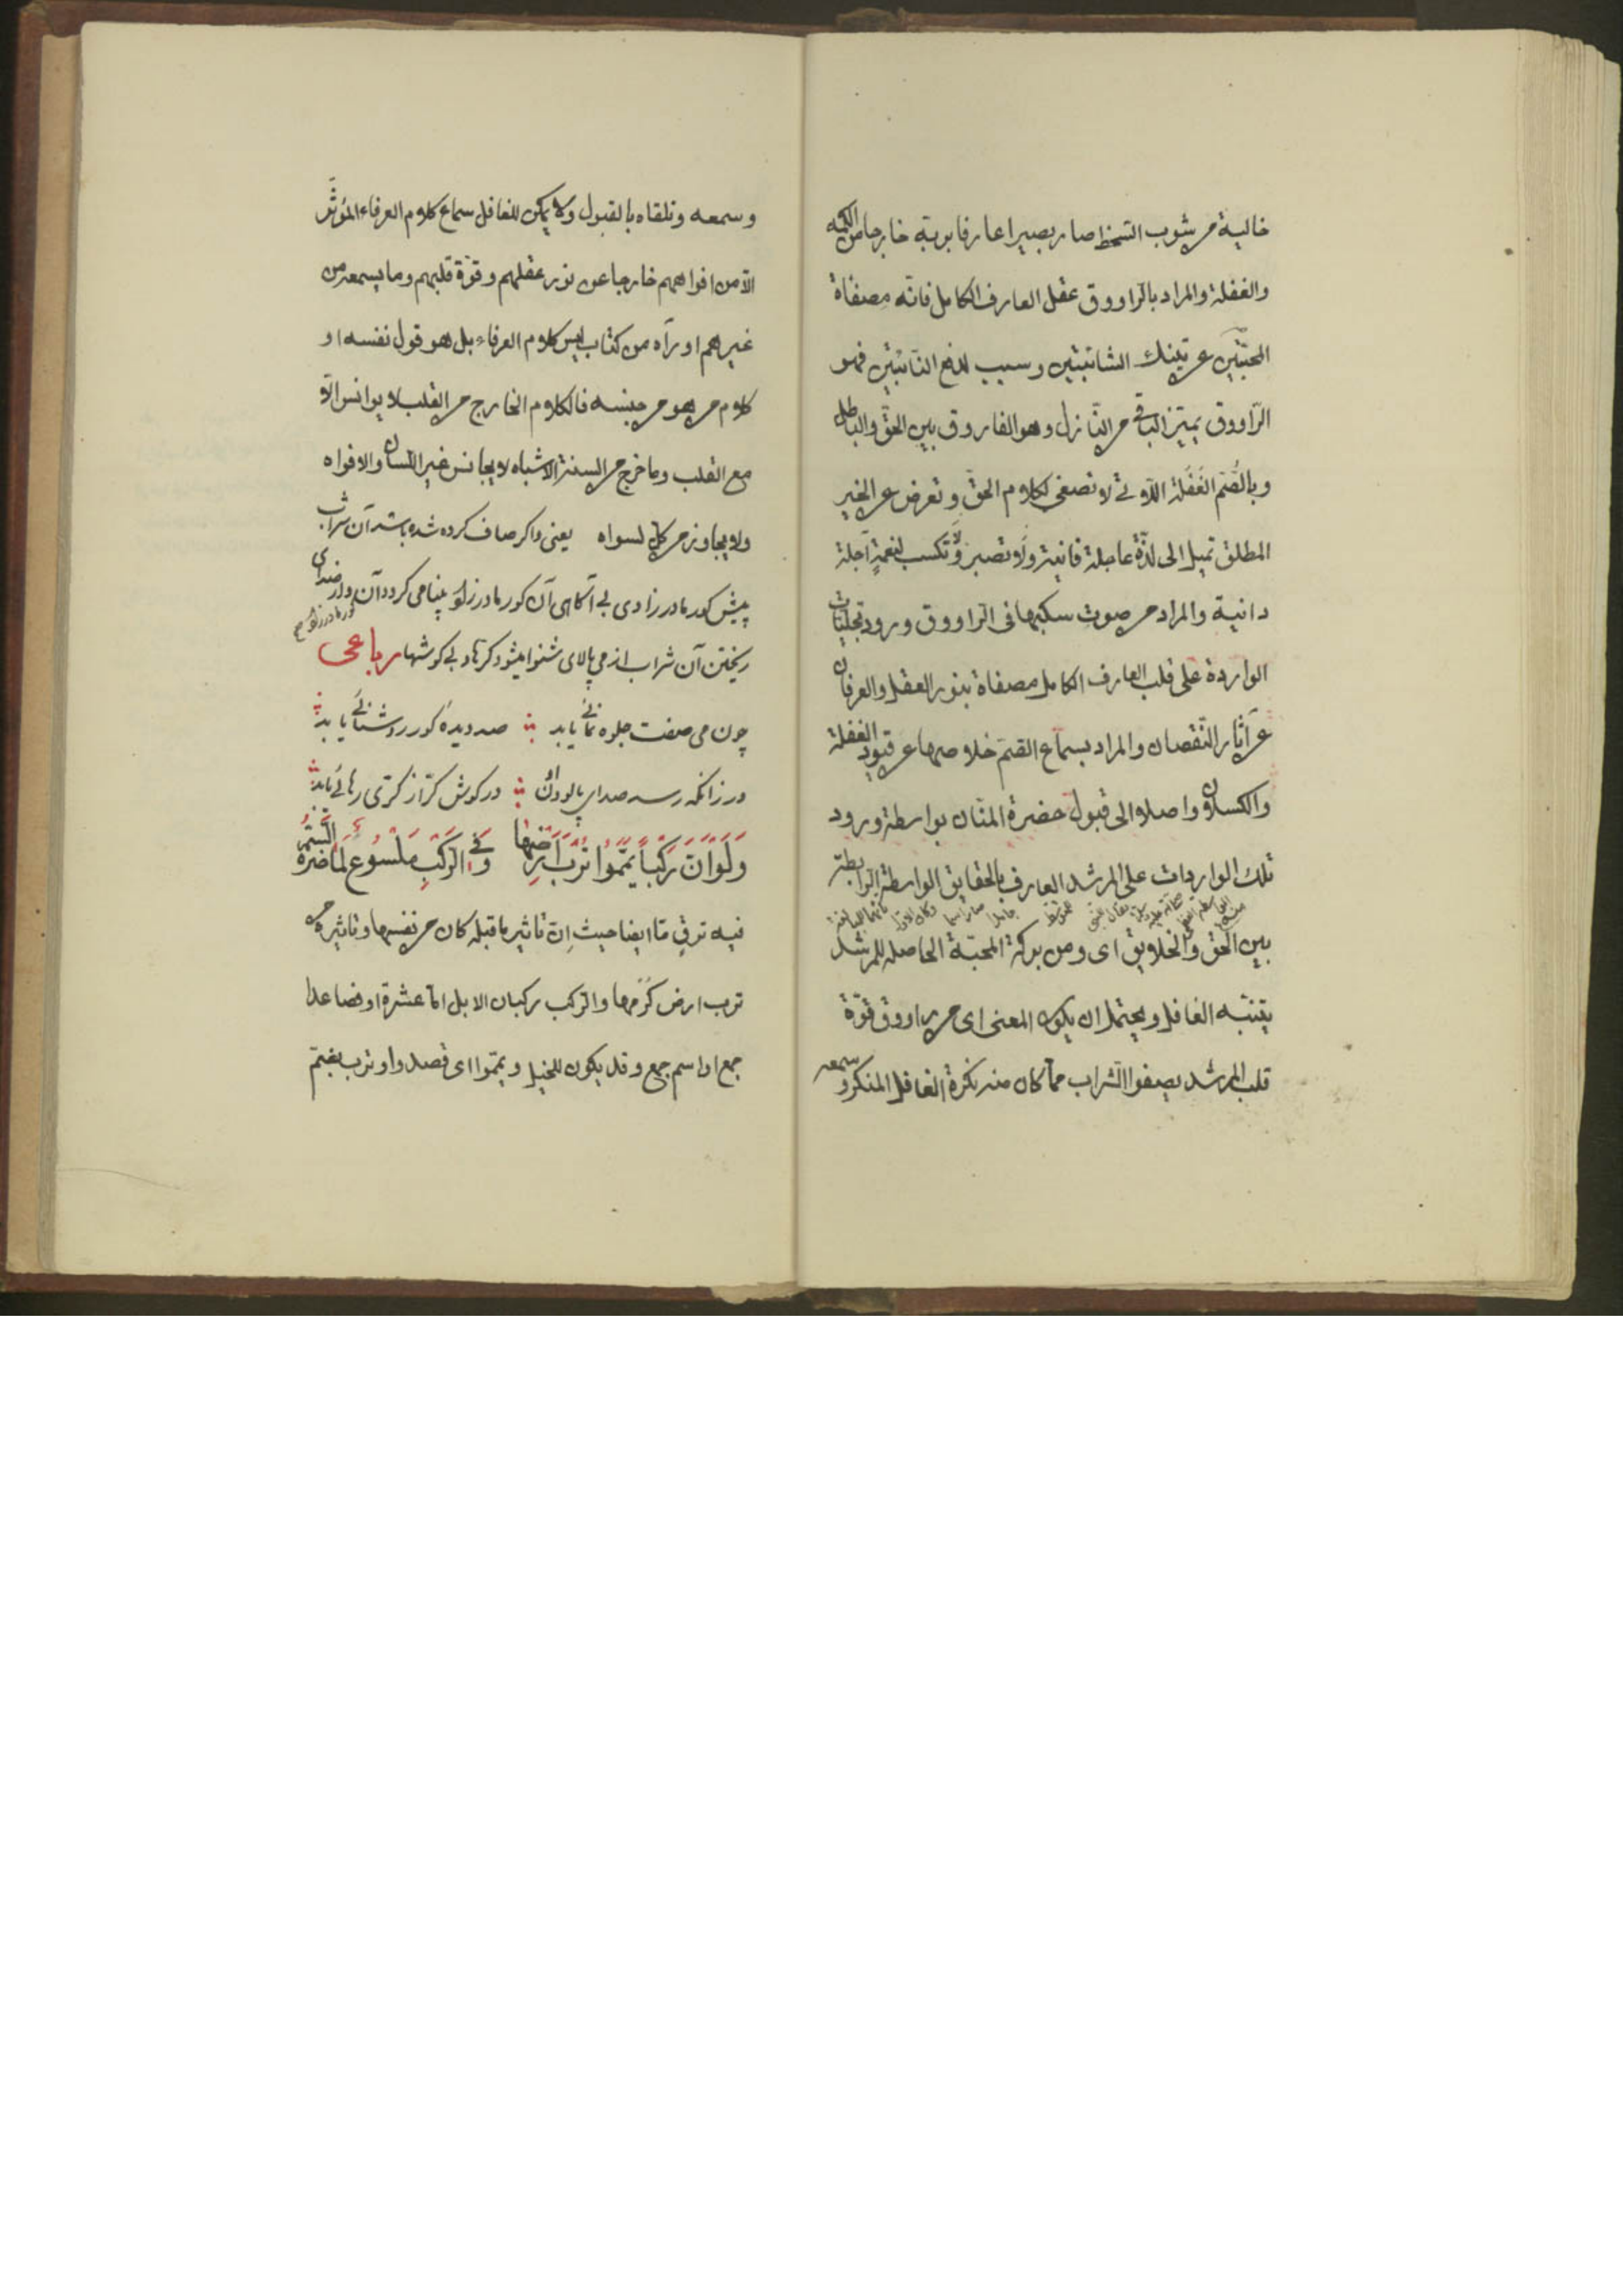 خالية من شوب السخط صار بصيرا عارفا بربه خارجا من الكمه
والغفلة والمراد بالراووق عقل العارف الكامل فانه مصفاة
المحبتين عن تينك الشائبتين وسبب لدفع النائبتين فهو
الراووق يميز الباقي من النازل وهو الفاروق بين الحق والباطل
وبالصم الغفلة اللاتي لا تصغى لكلام الحق وتعرض عن الخير
المطلق تميل الى لذة عاجلة فانية ولا تصبر ولا تكسب لنعمة آجلة
دانية والمراد من صوت سكبها فى الراووق ورود تجليات
الواردة على قلب العارف الكامل مصفاة بنور العقل والعرفان
عن آثار النقصان والمراد بسماع الصم خلاصها عن قيود الغفلة
والكسلان واصلا الى قبول حضرة المنان بواسطة ورود
تلك الواردات على المرشد العارف بالحقايق الواسطة الرابطة
بين الحق والخلايق اى ومن بركة المحبة الحاصلة للمرشد
يتنبه الغافل ويحتمل ان يكون المعنى اى من راووق قوة
قلب المرشد يصفوا الشراب مما كان منه نكرة الغافل المنكر وسمعه
وسمعه وتلقاه بالقبول ولا يمكن للغافل سماع كلام العرفاء المؤثر
الا من افواههم خارجا عن نور عقلهم وقوة قلبهم وما يسمعه من
غيرهم او رآه من كتاب ليس كلام العرفاء بل هو قول نفسه او
كلام من هو من جنسه فالكلام الخارج من القلب لا يوانس الا
مع القلب وما خرج من السنة الاشباه لا يجانس غير اللسان والافواه
ولا يجاوز من كل لسواه يعنى واكر صاف كرده شده باشد آن شراب
پيش كور مادر زادى بى آكاهى آن كور مادر زاد بينا مى كردد آن واز صداى
ريختن آن شراب از مى پالاى شنوا ميشود كرها وبى كوشها رباعى
چون مى صفت جلوه نمائى يابد صد ديده كور روشنائى يابد
ور زانكه رسد صداى پالودن در كوش كر از كرى رهائى يابد
وَلَوْ اَنَّ رَكْباً يَمَّمُوا تُرْبَ اَرْضِهَا وَفِى الرَّكْبِ مَلْسُوعٌ لَمَا ضَرَّهُ السَّمُّ
فيه ترقى ما ايضا حيث ان تاثير ما قبله كان من نفسها وتاثيره من
ترب ارض كرمها والركب ركبان الابل اما عشرة او فصاعدا
جمع او اسم جمع وقد يكون للخيل ويمموا اى قصدوا وترب بضم